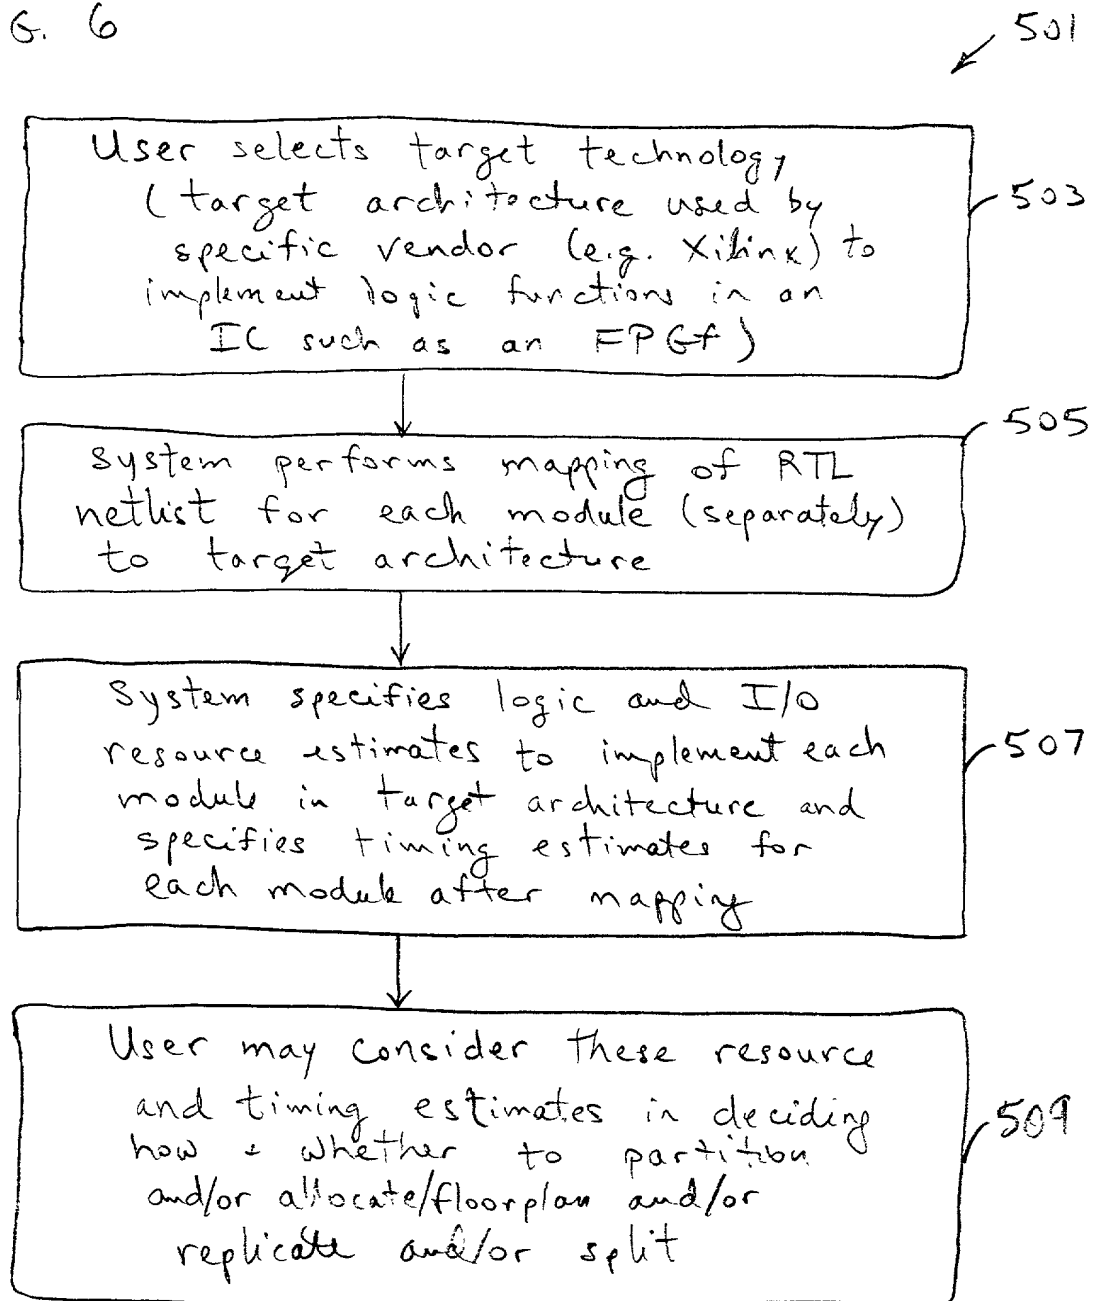 G. 6
501
User selects target technology
(target architecture used by
specific vendor (e.g. Xilinx) to
implement logic functions in an
IC such as an FPGA)
503
System performs mapping of RTL
netlist for each module (separately)
to target architecture
505
System specifies logic and I/O
resource estimates to implement each
module in target architecture and
specifies timing estimates for
each module after mapping
507
User may consider these resource
and timing estimates in deciding
how + whether to partition
and/or allocate/floorplan and/or
replicate and/or split
509